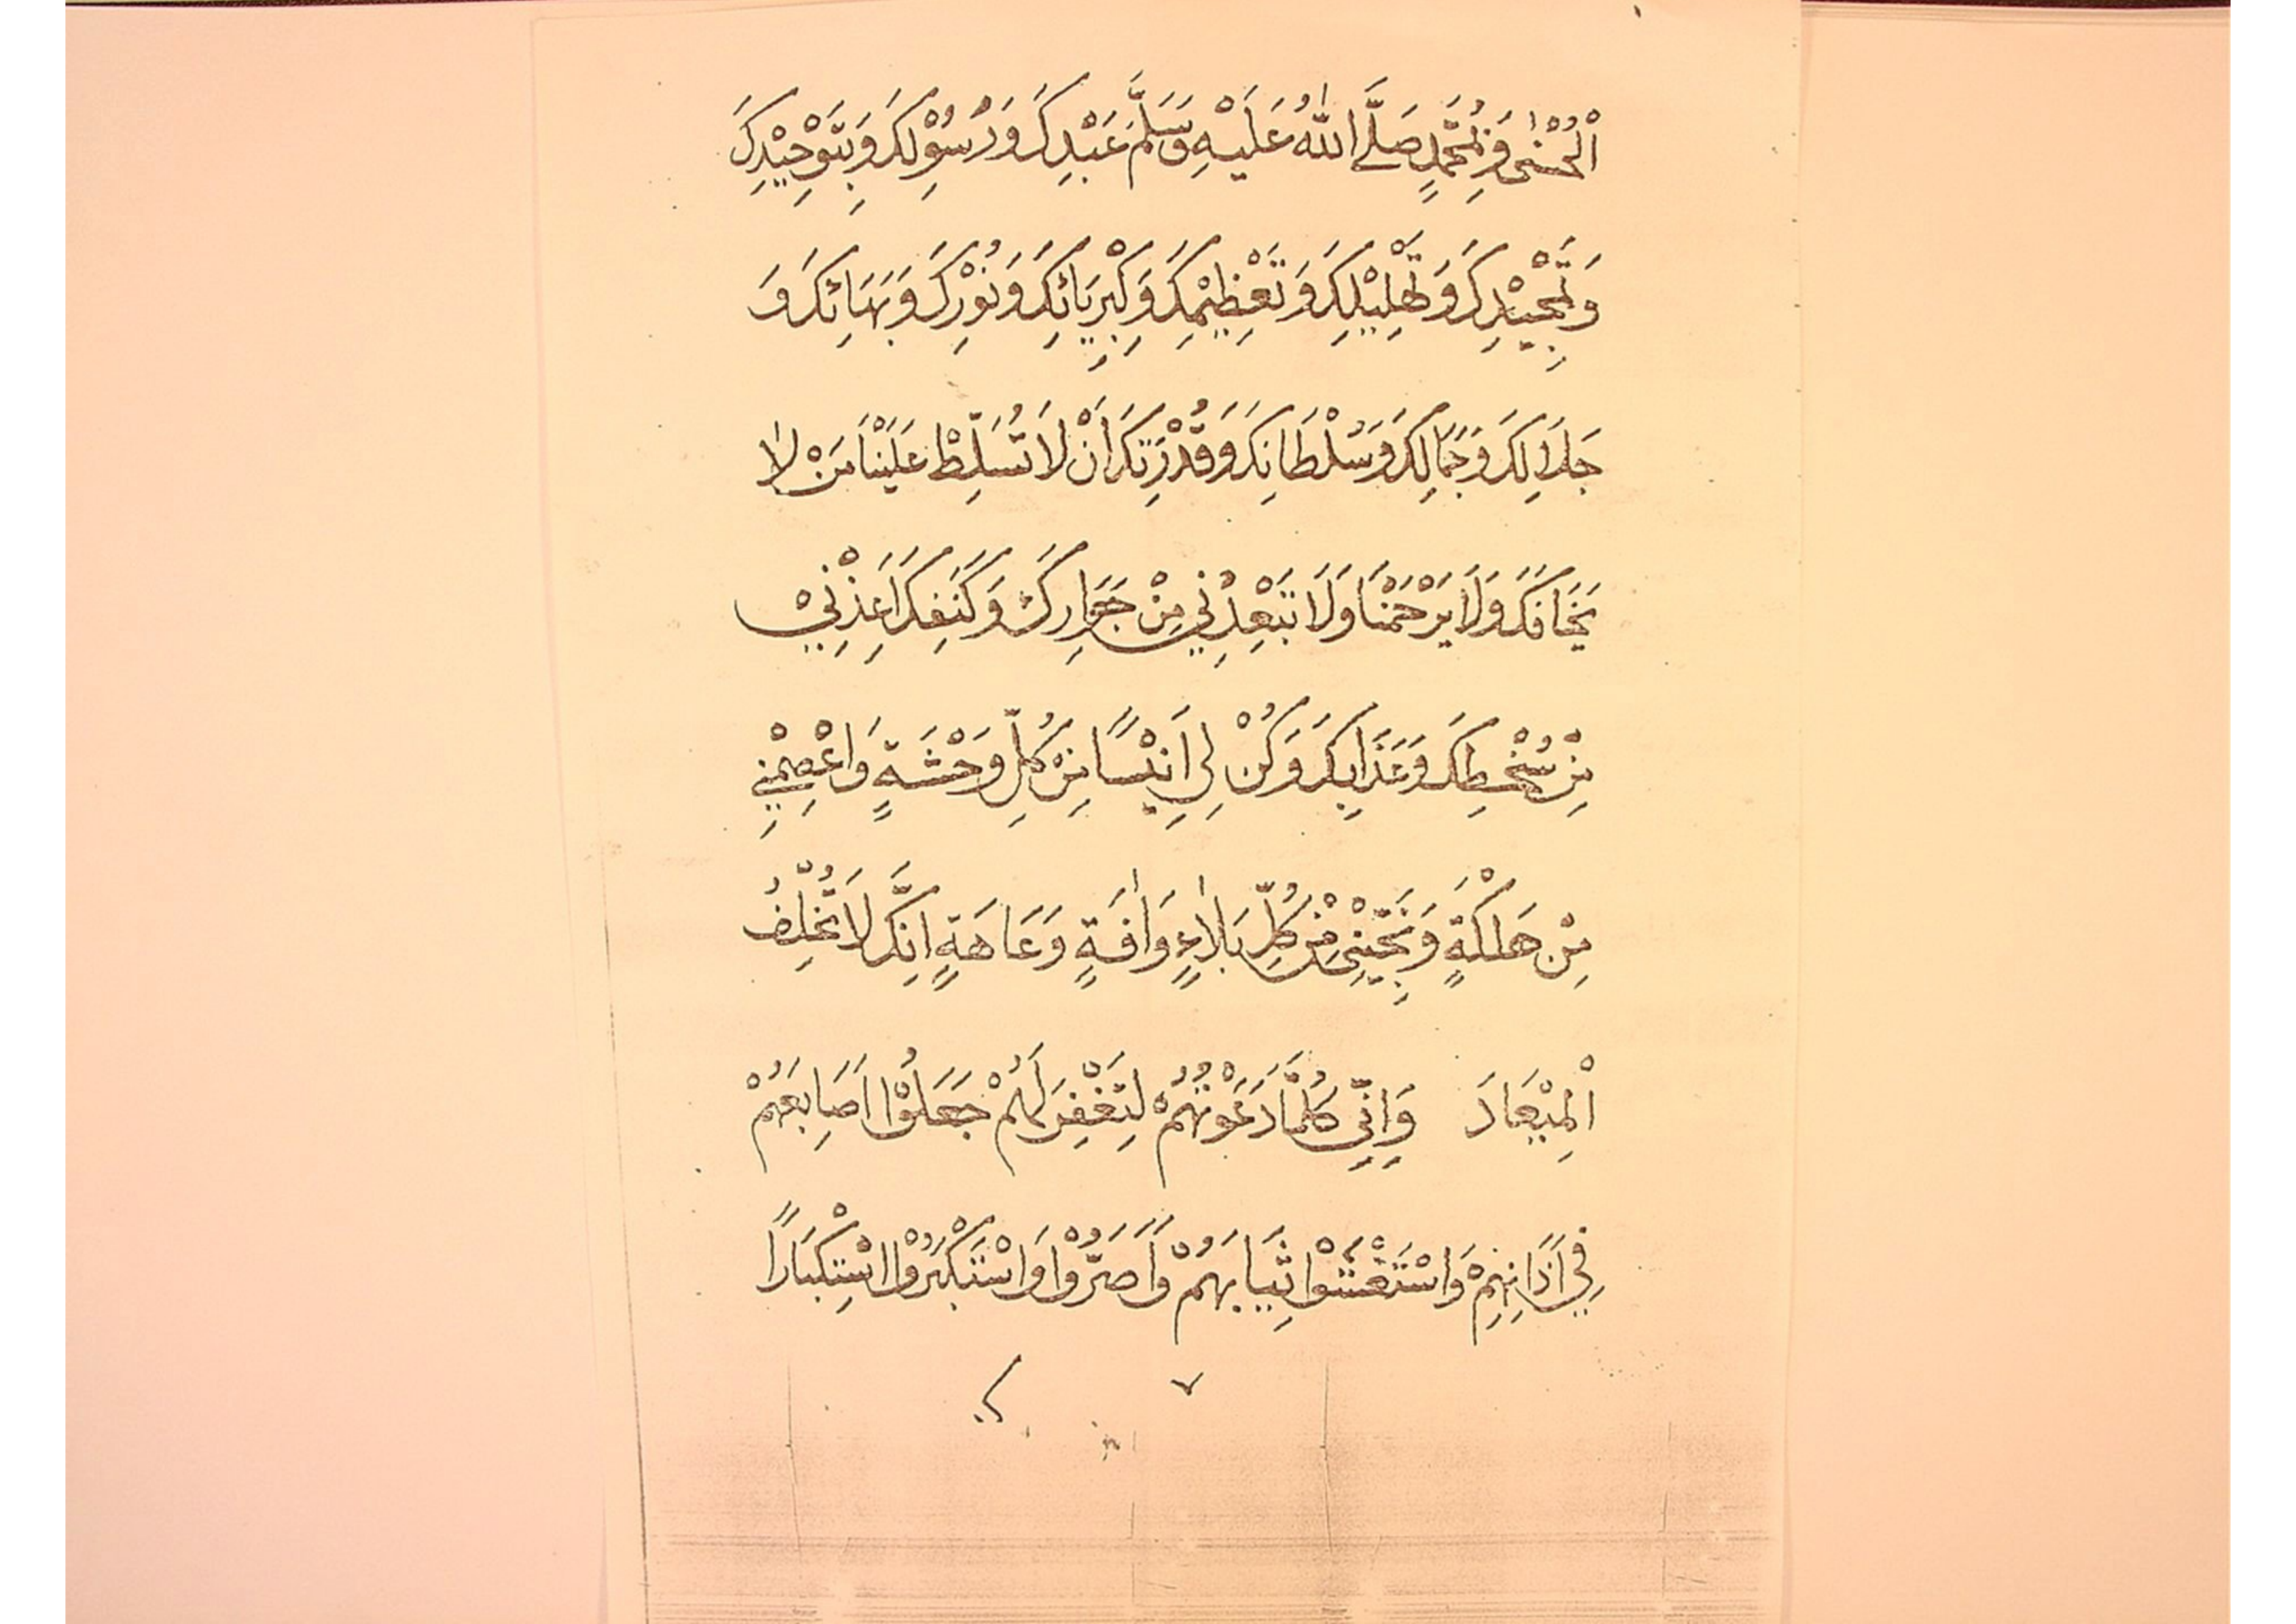 اْلحُسْنٰى وَبِمُحَمَّدٍ صَلَّے اللهُ عَلَيْهِ وَسَلَّمَ عَبْدِكَ وَرَسُوْلِكَ وَبِتَوْحِيْدِكَ
وَتَمْجِيْدِكَ وَتَهْلِيْلِكَ وَتَعْظِيْمِكَ وَكِبْرِيَائِكَ وَنُوْرِكَ وَبَهَائِكَ وَ
جَلَالِكَ وَجَمَالِكَ وَسُلْطَانِكَ وَقُدْرَتِكَ اَنْ لَا تُسَلِّطْ عَلَيْنَا مَنْ لَا
يَخَافُكَ وَلَا يَرْحَمْنَا وَلَا تَبْعِدْنِي مِنْ جَوَارِكَ وَكَنَفِكَ اَعِذْنِيْ
مِنْ سُخْطِكَ وَعَذَابِكَ وَكُنْ لِي اَنِيْسًا مِنْ كُلِّ وَحْشَةٍ وَاعْصِمْنِي
مِنْ هَلْكَةٍ وَنَجِّيْنِيْ مِنْ كُلِّ بَلٰاءٍ وَاٰفَةٍ وَعَاهَةٍ اِنَّكَ لَا تُخْلِفُ
اْلمِيْعَادَ وَاِنِّي كُلَّمَا دَعَوْتُهُمْ لِتَغْفِرَ لَهُمْ جَعَلُوْا اَصَابِعَهُمْ
فِي اٰذَانِهِمْ وَاسْتَغْشَوْا ثِيَابَهُمْ وَاَصَرُّوْا وَاسْتَكْبَرُوْا اسْتِكْبَارًا